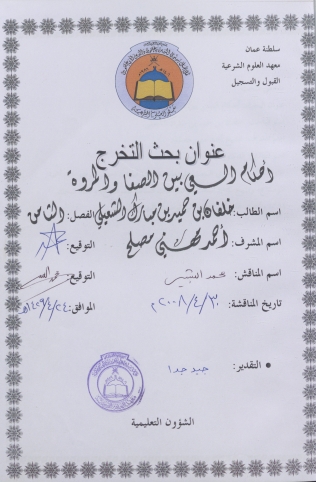 سلطنة عمان
معهد العلوم الشرعية
القبول والتسجيل
عنوان بحث التخرج
أحكام السعي بين الصفا والمروة
اسم الطالب: خلفان بن حميد بن مبارك الشعيلي الفصل: الثامن
اسم المشرف: أحمد مهني مصلح التوقيع:
اسم المناقش: محمد البشير التوقيع:
تاريخ المناقشة: ٢٠٠٨/٤/٣٠م الموافق: ١٤٢٩/٤/٢٤هـ
• التقدير: جيد جدا
الشؤون التعليمية